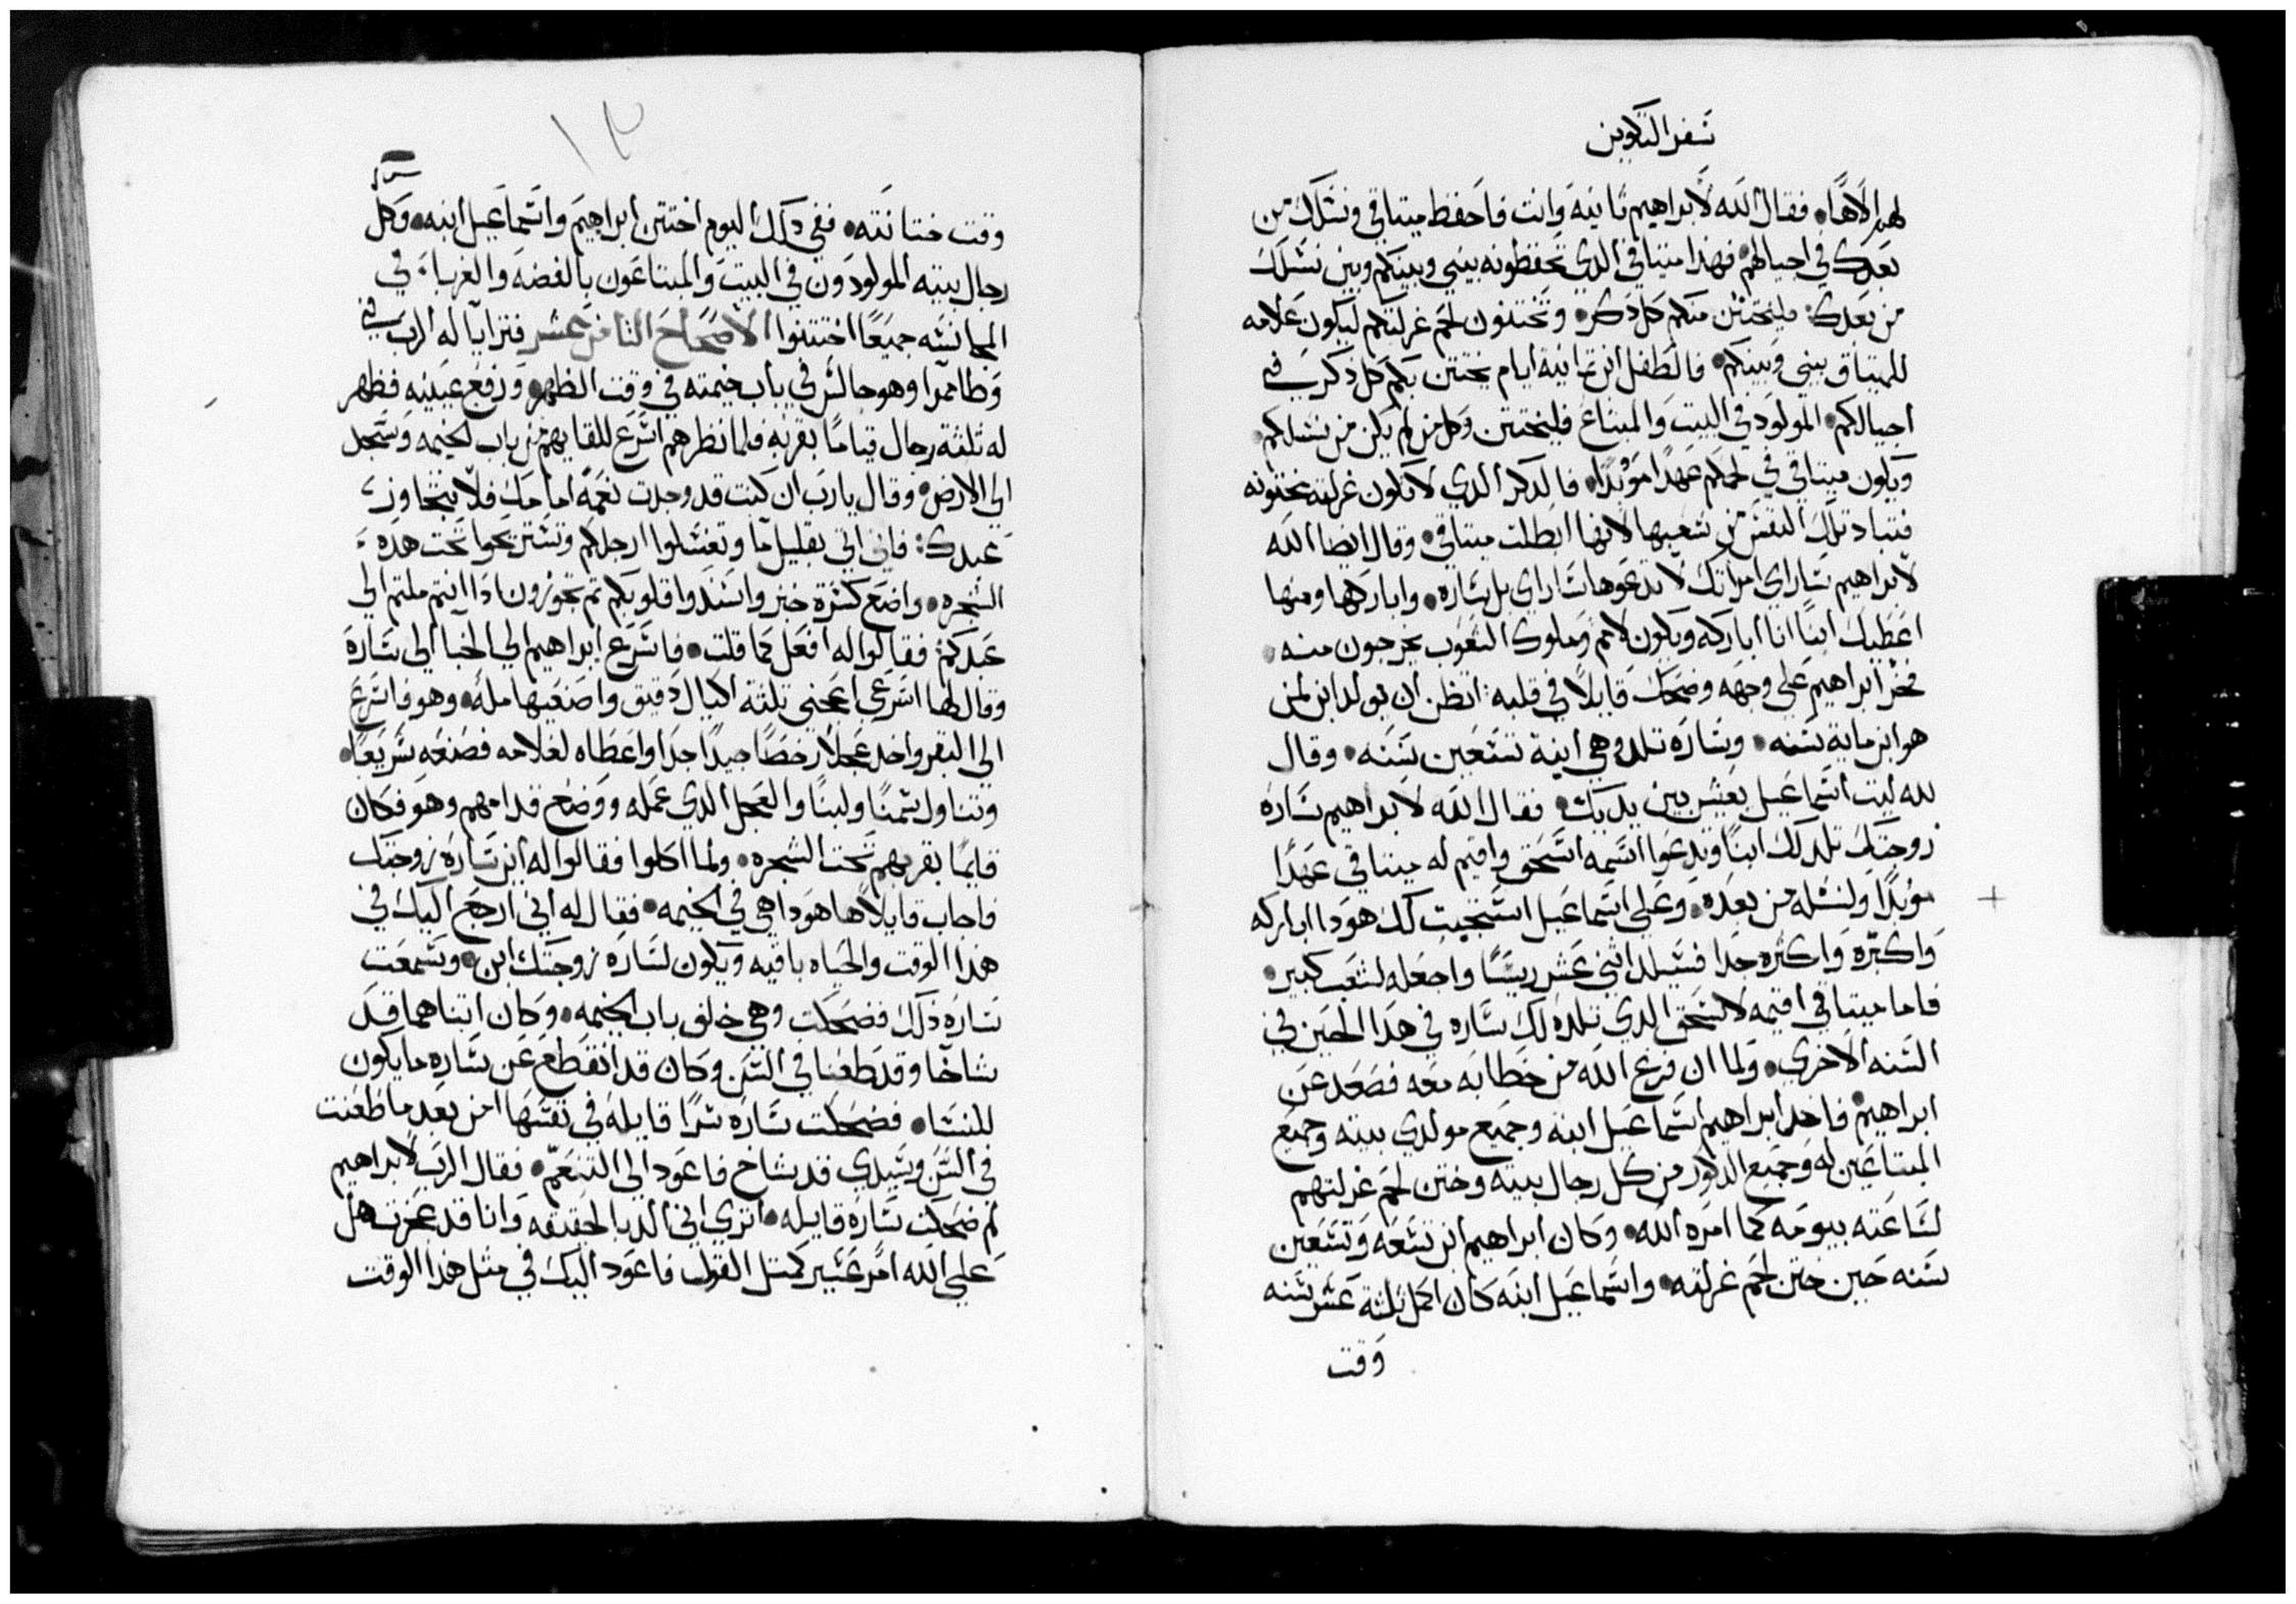 سفر التكوين
لهم الاهًا • فقال الله لابراهيم ثانيه وانت فاحفظ ميتاقي ونسلك من
بعدك في اجيالهم • فهذا ميتاقي الذي تحفظونه بيني وبينكم وبين نسلك
من بعدك : فليختتن منكم كل ذكر • وتختنون لحم غرلتكم ليكون علامه
للميتاق بيني وبينكم • فالطفل ابن تمانية ايام يختتن بكم كل ذكر في
اجيالكم • المولود في البيت والمبتاع فليختتن وكل من لم يكن من نسلكم •
ويكون ميتاقي في لحمكم عهدًا موبدًا • فالدكر الدي لا تكون غرلته مختونه
فتباد تلك النفس من شعبها لانها ابطلت ميتاقي • وقال ايضا الله
لابراهيم ساراي امراتك لا تدعوها ساراي بل ساره • واباركها ومنها
اعطيك ابنًا انا اباركه ويكون لامم وملوك الشعوب يخرجون منه •
فخر ابراهيم علي وجهه وضحك قايلًا في قلبه : اتظن ان يولد ابن لمن
هو ابن مايه سنه • وساره تلد وهي ابنة تسعين سنه • وقال
لله ليت اسماعيل يعيش بين يديك • فقال الله لابراهيم ساره
زوجتك تلد لك ابنًا وتدعوا اسمه اسحق واقيم له ميتاقي عهدًا
موبدًا ولنسله من بعده • وعلي اسماعيل استجيت لك هودا اباركه
واكبره واكثره جدا فسيلد اثني عشر ريسًا واجعله لشعب كبير •
فاما ميتاقي اقيمه لاسحق الدي تلده لك ساره في هدا الحين في
السنه الاخري • ولما ان فرغ الله من خطابه معه فصعد عن
ابراهيم • فاخد ابراهيم اسماعيل ابنه وجميع مولدي بيته وجميع
المبتاعين له وجميع الدكور من كل رجال بيته وختن لحم غرلتهم
لساعته بيومه كما امره الله • وكان ابراهيم ابن تسعه وتسعين
سنه حين ختن لحم غرلته • واسماعيل ابنه كان اكمل ثلثة عشر سنه
وقت
١٣
وقت ختانته • ففي دلك اليوم اختتن ابراهيم واسماعيل ابنه • وكل
رجال بيته المولودون في البيت والمبتاعون بالفضه والغرباء في
المجانسه جميعًا اختتنوا الاصحاح الثامن عشر فترايا له الرب في
وطا ممرا وهو جالس في باب خيمته في وقت الظهر • ورفع عينيه فظهر
له ثلثة رجال قيامًا بقربه فلما نظرهم اسرع للقايهم من باب الخيمه وسجد
الي الارض • وقال يارب ان كنت قد وجدت نعمةً امامك فلا تتجاوز
عبدك : فاني اتي بقليل ما وتغسلوا ارجلكم وتستريحوا تحت هده
الشجره • واضع كسرة خبز واسندوا قلوبكم تم تجوزون اذا انتم ملتم الي
عبدكم فقالوا له افعل كما قلت • فاسرع ابراهيم الي الخبا الي ساره
وقال لها اسرعي اعجني تلتة اكيال دقيق واصنعيها مله • وهو فاسرع
الي البقر واخد عجلًا رخصًا جيدًا جدا واعطاه لغلامه فصنعه سريعًا •
وتناول سمنًا ولبنًا والعجل الدي عمله ووضع قدامهم وهو فكان
قايمًا بقربهم تحت الشجره • ولما اكلوا فقالوا له اين ساره زوجتك
فاجاب قايلًا ها هودا هي في الخيمه • فقال له اني ارجع اليك في
هدا الوقت والحياه باقيه ويكون لساره زوجتك ابن • وسمعت
ساره ذلك فضحكت وهي خلف باب الخيمه • وكان اتناهما قد
شاخا وقد طعنا في السن وكان قد انقطع عن ساره ما يكون
للنسا • فضحكت ساره سرًا قايله في نفسها امن بعد ما طعنت
في السن وسيدي قد شاخ فاعود الي التنعم • فقال الرب لابراهيم
لم ضحكت ساره قايله • اتري اني الد بالحقيقه وانا قد عجزت هل
علي الله امر عسير كمتل القول فاعود اليك في مثل هدا الوقت